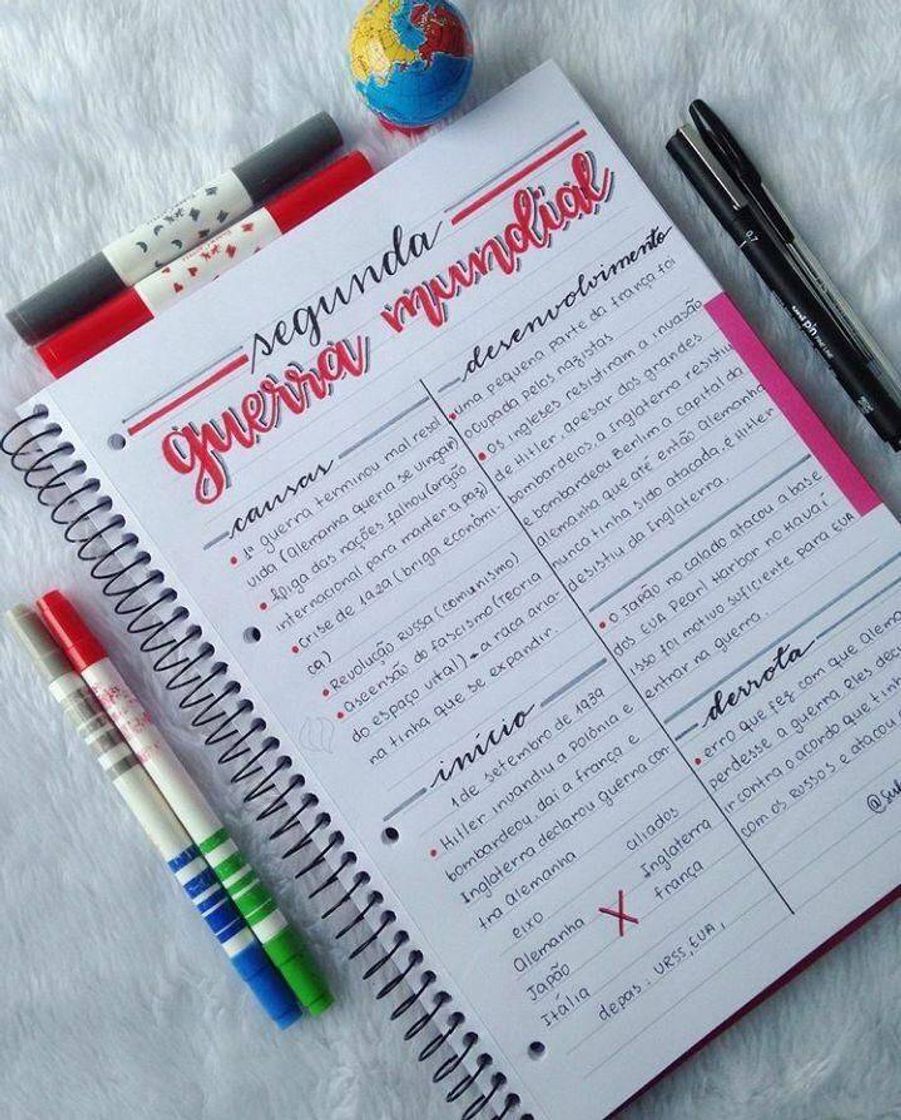 segunda
guerra mundial
causas
• 1ª guerra terminou mal resol
vida (Alemanha queria se vingar)
• liga das nações falhou (orgão
internacional para manter a paz)
• crise de 1929 (briga econômi-
ca)
• Revolução Russa (comunismo)
• ascensão do fascismo (Teoria
do espaço vital) → a raça aria-
na tinha que se expandir.
início
1 de setembro de 1939
• Hitler invandiu a Polônia e
bombardeou, daí a frança e
Inglaterra declarou guerra con-
tra alemanha
eixo aliados
Alemanha X Inglaterra
Japão frança
Itália
depois: URSS, EUA,
desenvolvimento
• uma pequena parte da frança foi
ocupada pelos nazistas
• Os ingleses resistiram a invasão
de Hitler, apesar dos grandes
bombardeios, a Inglaterra resistiu
e bombardeou Berlim a capital da
Alemanha que até então Alemanha
nunca tinha sido atacada, e Hitler
desistiu da Inglaterra.
• O Japão no calado atacou a base
dos EUA Pearl Harbor no Havaí
isso foi motivo suficiente para EUA
entrar na guerra.
derrota
• erro que fez com que
perdesse a guerra. Eles
ir contra o acordo que
com os Russos e atacou
0.7
uni pin